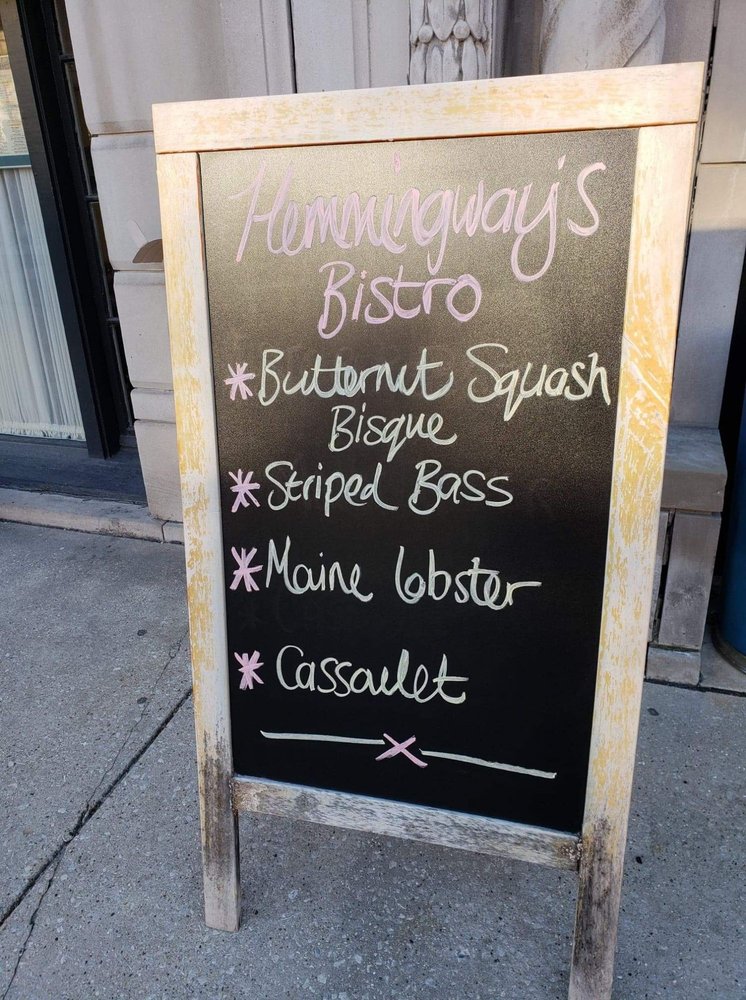 Hemmingway's
Bistro
*Butternut Squash
Bisque
*Striped Bass
*Maine lobster
*Cassoulet